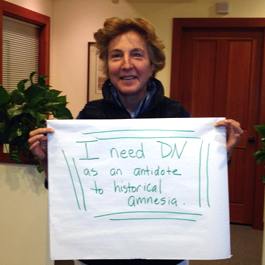 I need DN
as an antidote
to historical
amnesia.